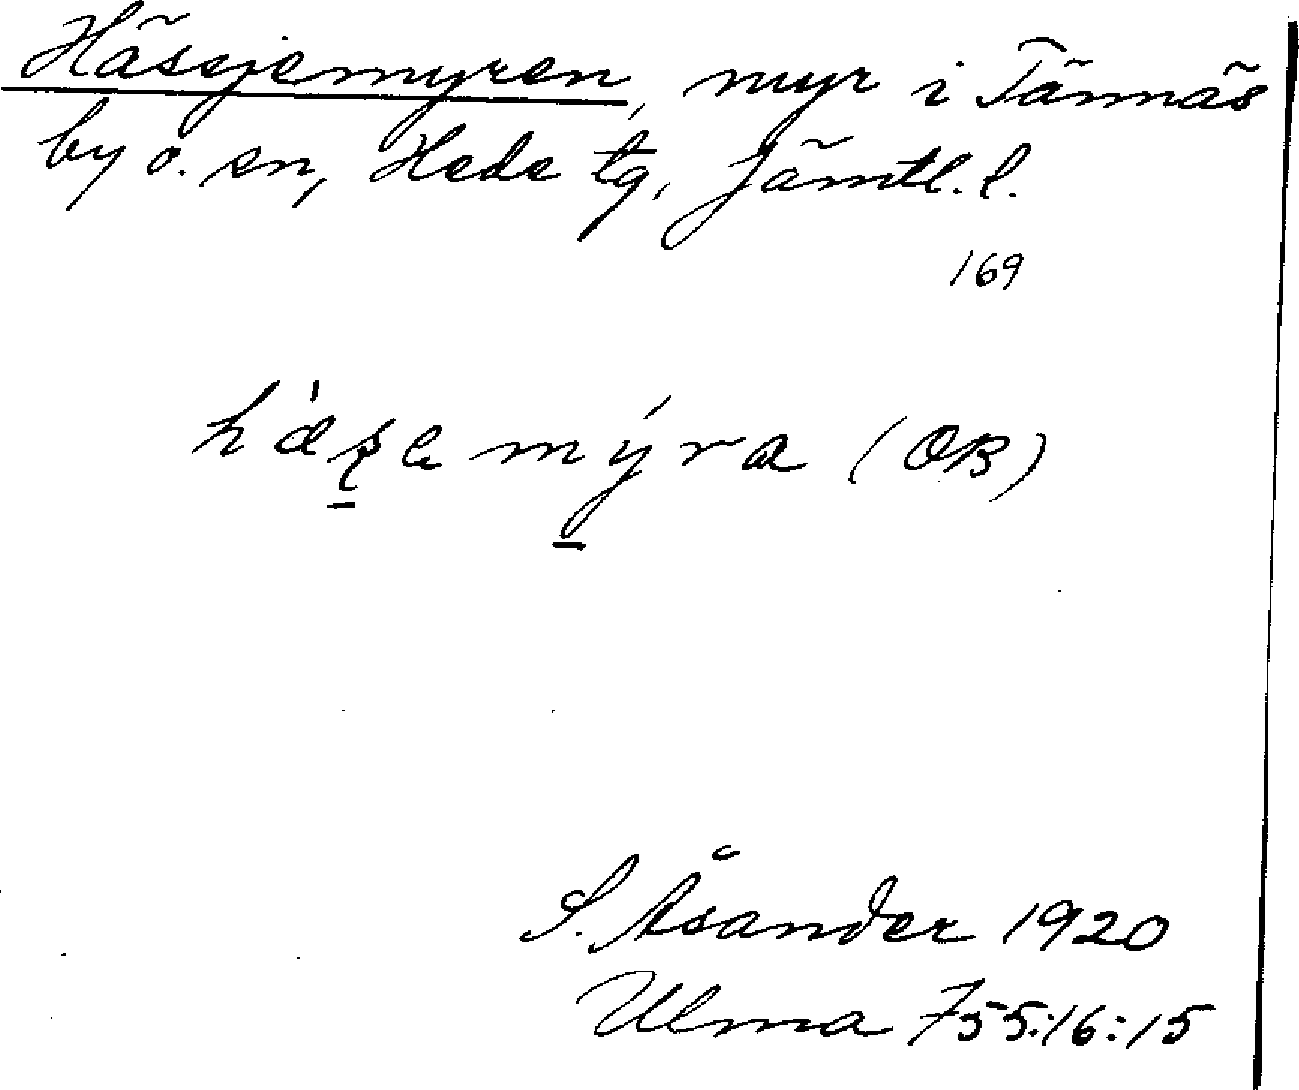 Hässjemyren, myr i Tännäs
by o. sn, Hede tg, Jämtl. l.
169
hæ̀ʂe mýra (OB)
S. Åsander 1920
Ulma 755:16:15